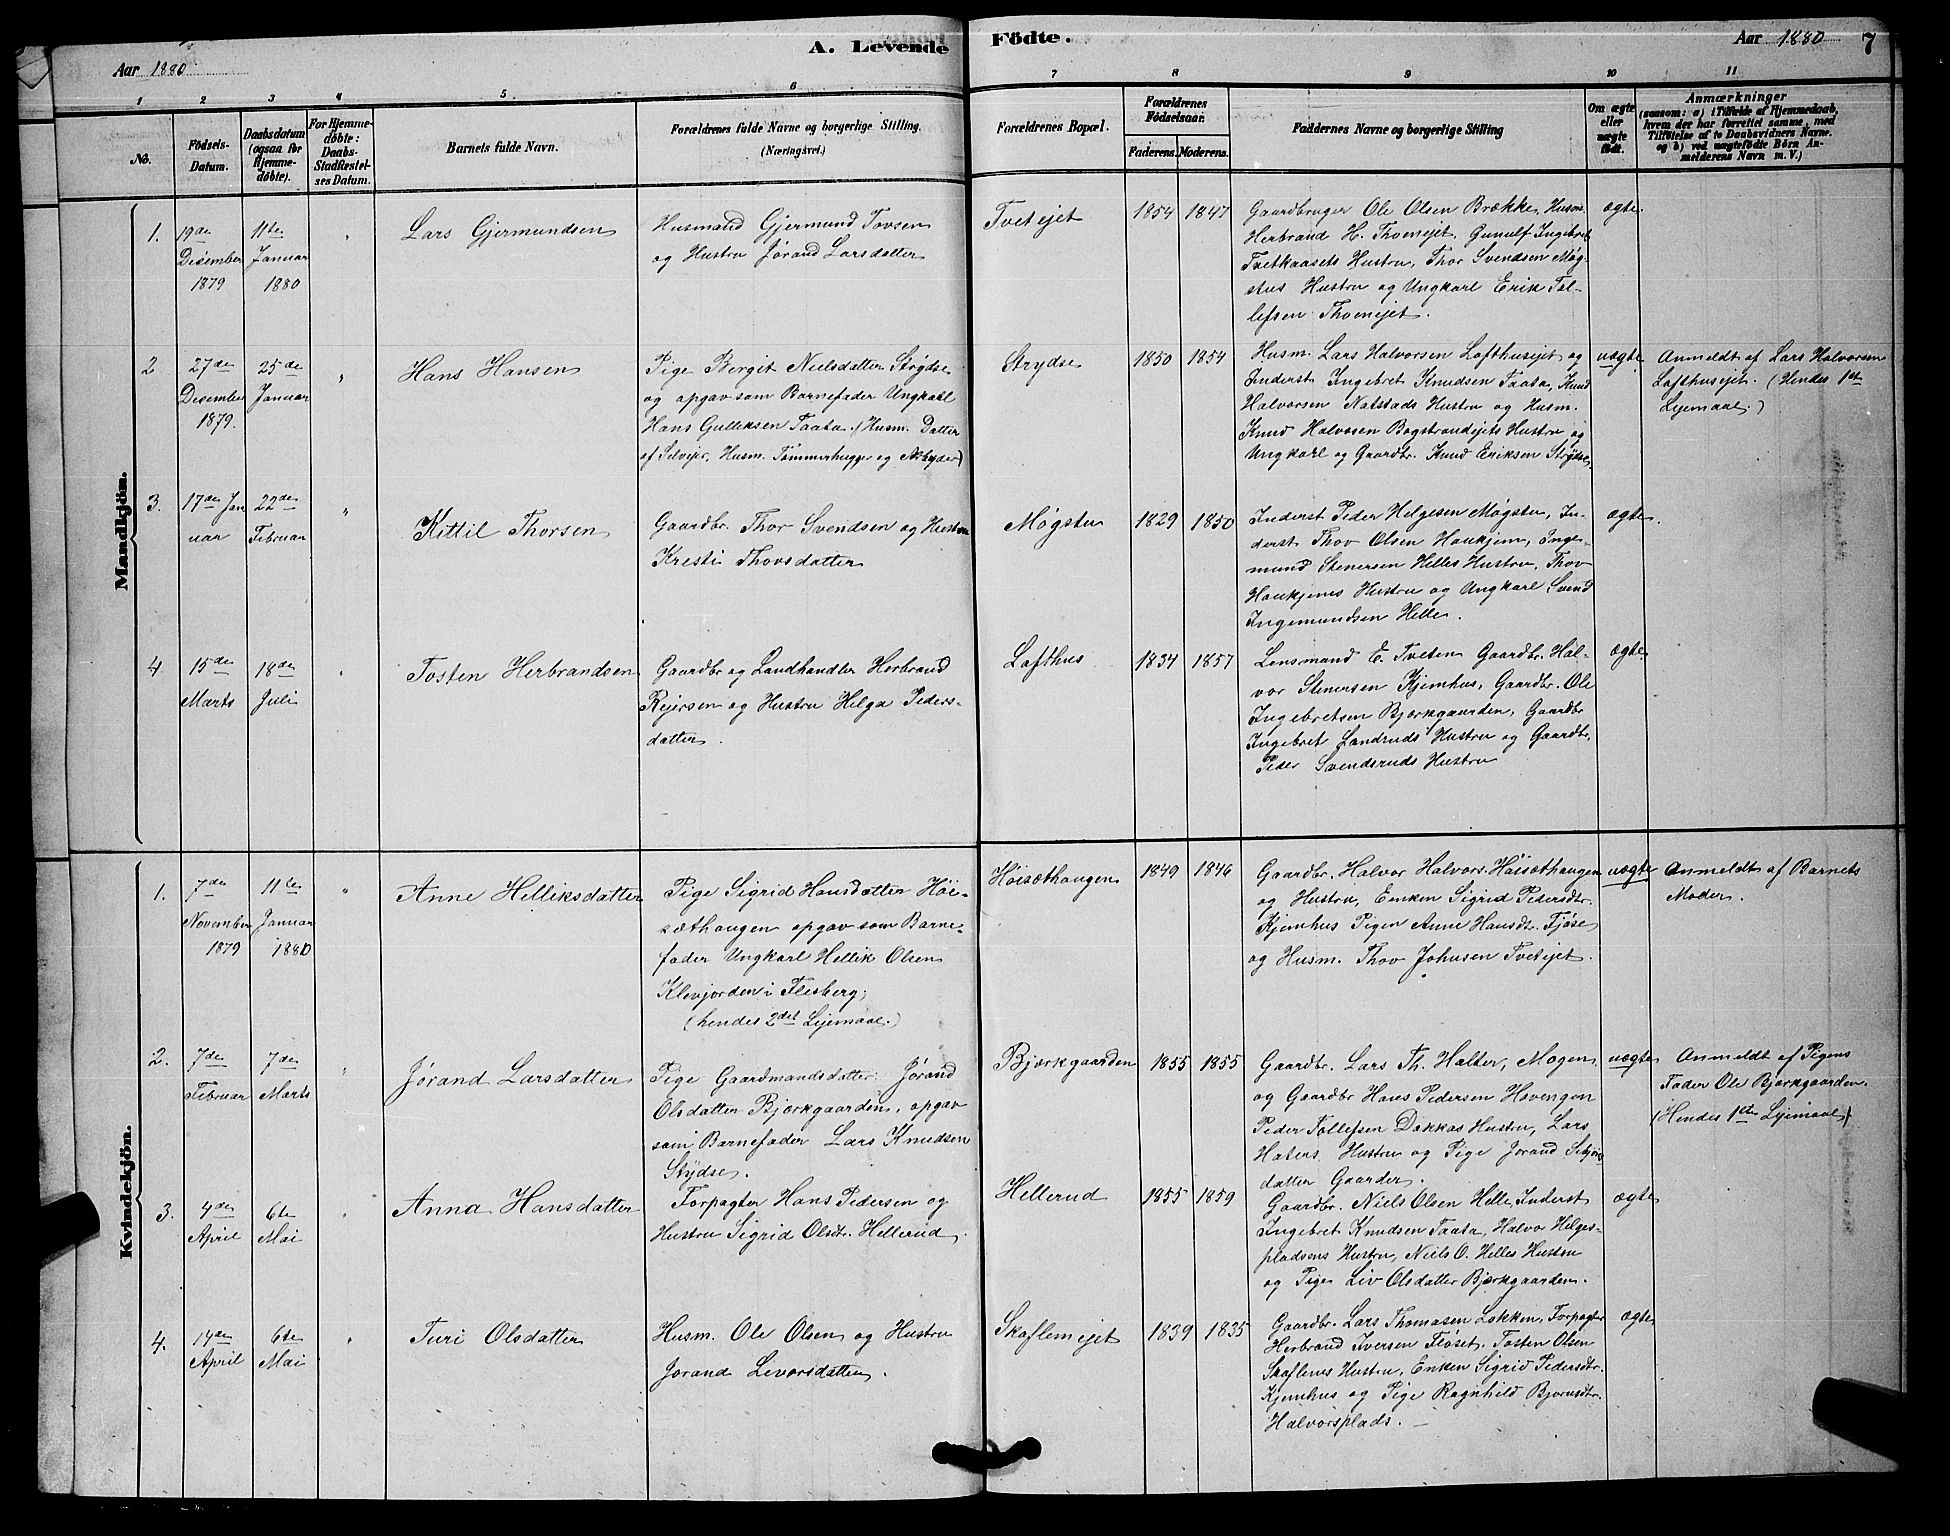 A. Levende Födte.
Aar 1880
Aar 1880
7
1 2 3 4 5 6 7 8 9 10 11
No.
Födsels-
Datum.
Daabsdatum
(ogsaa for
Hjemme-
döbte).
For Hjemme-
döbte:
Daabs-
Stadfæstel-
ses Datum.
Barnets fulde Navn.
Forældrenes fulde Navne og borgerlige Stilling.
(Næringsvei.)
Forældrenes Bopæl.
Forældrenes
Födselsaar.
Faderens. Moderens.
Faddernes Navne og borgerlige Stilling
Om ægte
eller
uægte
födt.
Anmærkninger
(saasom: a) i Tilfælde af Hjemmedaab,
hvem der har forrettet samme, med
Tilföielse af to Daabsvidners Navne.
og b) ved uægtefödte Börn An-
melderens Navn m. V.)
Mandkjön.
1.
19de
Desember
1879
11te
Januar
1880
"
Lars Gjermundsen
Husmand Gjermund Tovsen
og Hustru Jørand Larsdatter
Tvetejet
1854 1847
Gaardbruger Ole Olsen Brække, Husm.
Herbrand H. Thoenejet, Gunulf Ingebret
Tvetkaasets Hustru, Thor Svendsen Møg-
stus Hustru og Ungkarl Erik Tol-
lefsen Thoenejet.
ægte
2
27de
Desember
1879.
25de
Januar
"
Hans Hansen
Pige Bergit Nielsdatter Strydse
og opgav som Barnefader Ungkarl
Hans Gulliksen Taata. (Husm. Datter
af Selvejer, Husm. Tømmerhugger og Arbyder)
Strydse
1850 1854
Husm. Lars Halvorsen Lofthusejet og
Inderst Ingebret Knudsen Taata, Knud
Halvorsen Natstads Hustru og Husm.
Knud Halvosen Bogstrandejets Hustru og
Ungkarl og Gaardbr. Knud Eriksen Strydse,
uægte
Anmeldt af Lars Halvorsen
Lofthusejet. (Hendes 1ste
Lejemaal.)
3.
17de Jan
uar
22de
Februar
"
Kittil Thorsen
Gaardbr. Thor Svendsen og Hustru
Kresti Thovsdatter
Møgstu
1829 1850
Inderst Peder Helgesen Møgstu, In-
derst Thov Olsen Haukjem, Inge-
mund Stenersen Helles Hustru, Thov
Haukjems Hustru og Ungkarl Svend
Ingemundsen Helle.
ægte.
4.
15de
Marts
18de
Juli
"
Tosten Herbrandsen
Gaardbr og Landhandler Herbrand
Rejersen og Hustru Helga Peders-
datter.
Lofthus
1834 1857
Lensmand E. Tveten Gaardbr. Hal-
vor Stenersen Kjemhus, Gaardbr. Ole
Ingebretsen Bjørkgaarden, Gaardbr
Ingebret Landruds Hustru og Gaardbr,
Peder Svendsruds Hustru
ægte
Kvindekjön.
1.
7de
November
1879
11te
Januar
1880
"
Anne Helliksdatter
Pige Sigrid Hansdatter Høi-
sæthaugen opgav som Barne-
fader Ungkarl Hellik Olsen
Klevjorden i Flesberg;
(hendes 2det Lejemaal.)
Høisæthaugen
1849 1846
Gaardbr. Halvor Halvors. Høisæthaugen
og Hustru, Eenken Sigrid Pedersdtr.
Kjemhus Pigen Anne Hansdtr. Fjøse
og Husm. Thov Johnsen Tvetejet.
uægte
Anmeldt af Barnets
Moder.
2.
7de
Februar
7de
Marts
"
Jørand Larsdatter
Pige Gaardmandsdatter Jørand
Olsdatter Bjørkgaarden, opgav
som Barnefader Lars Knudsen
Stydse.
Bjørkgaarden
1855 1855
Gaardbr. Lars Th. Halter, Mogen
og Gaardbr Hans Pedersen Hovengen
Peder Tollefsen Dokkas Hustru, Lars
Haters Hustru og Pige Jørand
datter Gaarder.
uægte
Anmeldt af Pigens
Fader Ole Bjørkgaarden.
(Hendes 1ste Lejemaal)
3.
4de
April
6te
Mai
"
Anna Hansdatter
Forpagter Hans Pedersen og
Hustru Sigrid Olsdtr. Hellerud.
Hellerud
1855 1859
Gaardbr. Niels Olsen Helle, Inderst
Ingebret Knudsen Taata, Halvor Helges-
pladsens Hustru, Niels O. Helles Hustru
og Pige Liv Olsdatter Bjørkgaarden.
ægte
4.
14de
April
6te
Mai
"
Turi Olsdatter
Husm. Ole Olsen og Hustru
Jørand Levorsdatter.
Skaflemejet
1839 1835
Gaardbr. Lars Thomasen Løkken, Forpagter
Herbrand Iversen Fløset, Tosten Olsen
Skaflens Hustru, Enken Sigrid Pedersdtr.
Kjemhus og Pige Ragnhild Bjørnsdtr.
Halvorsplads. —
ægte